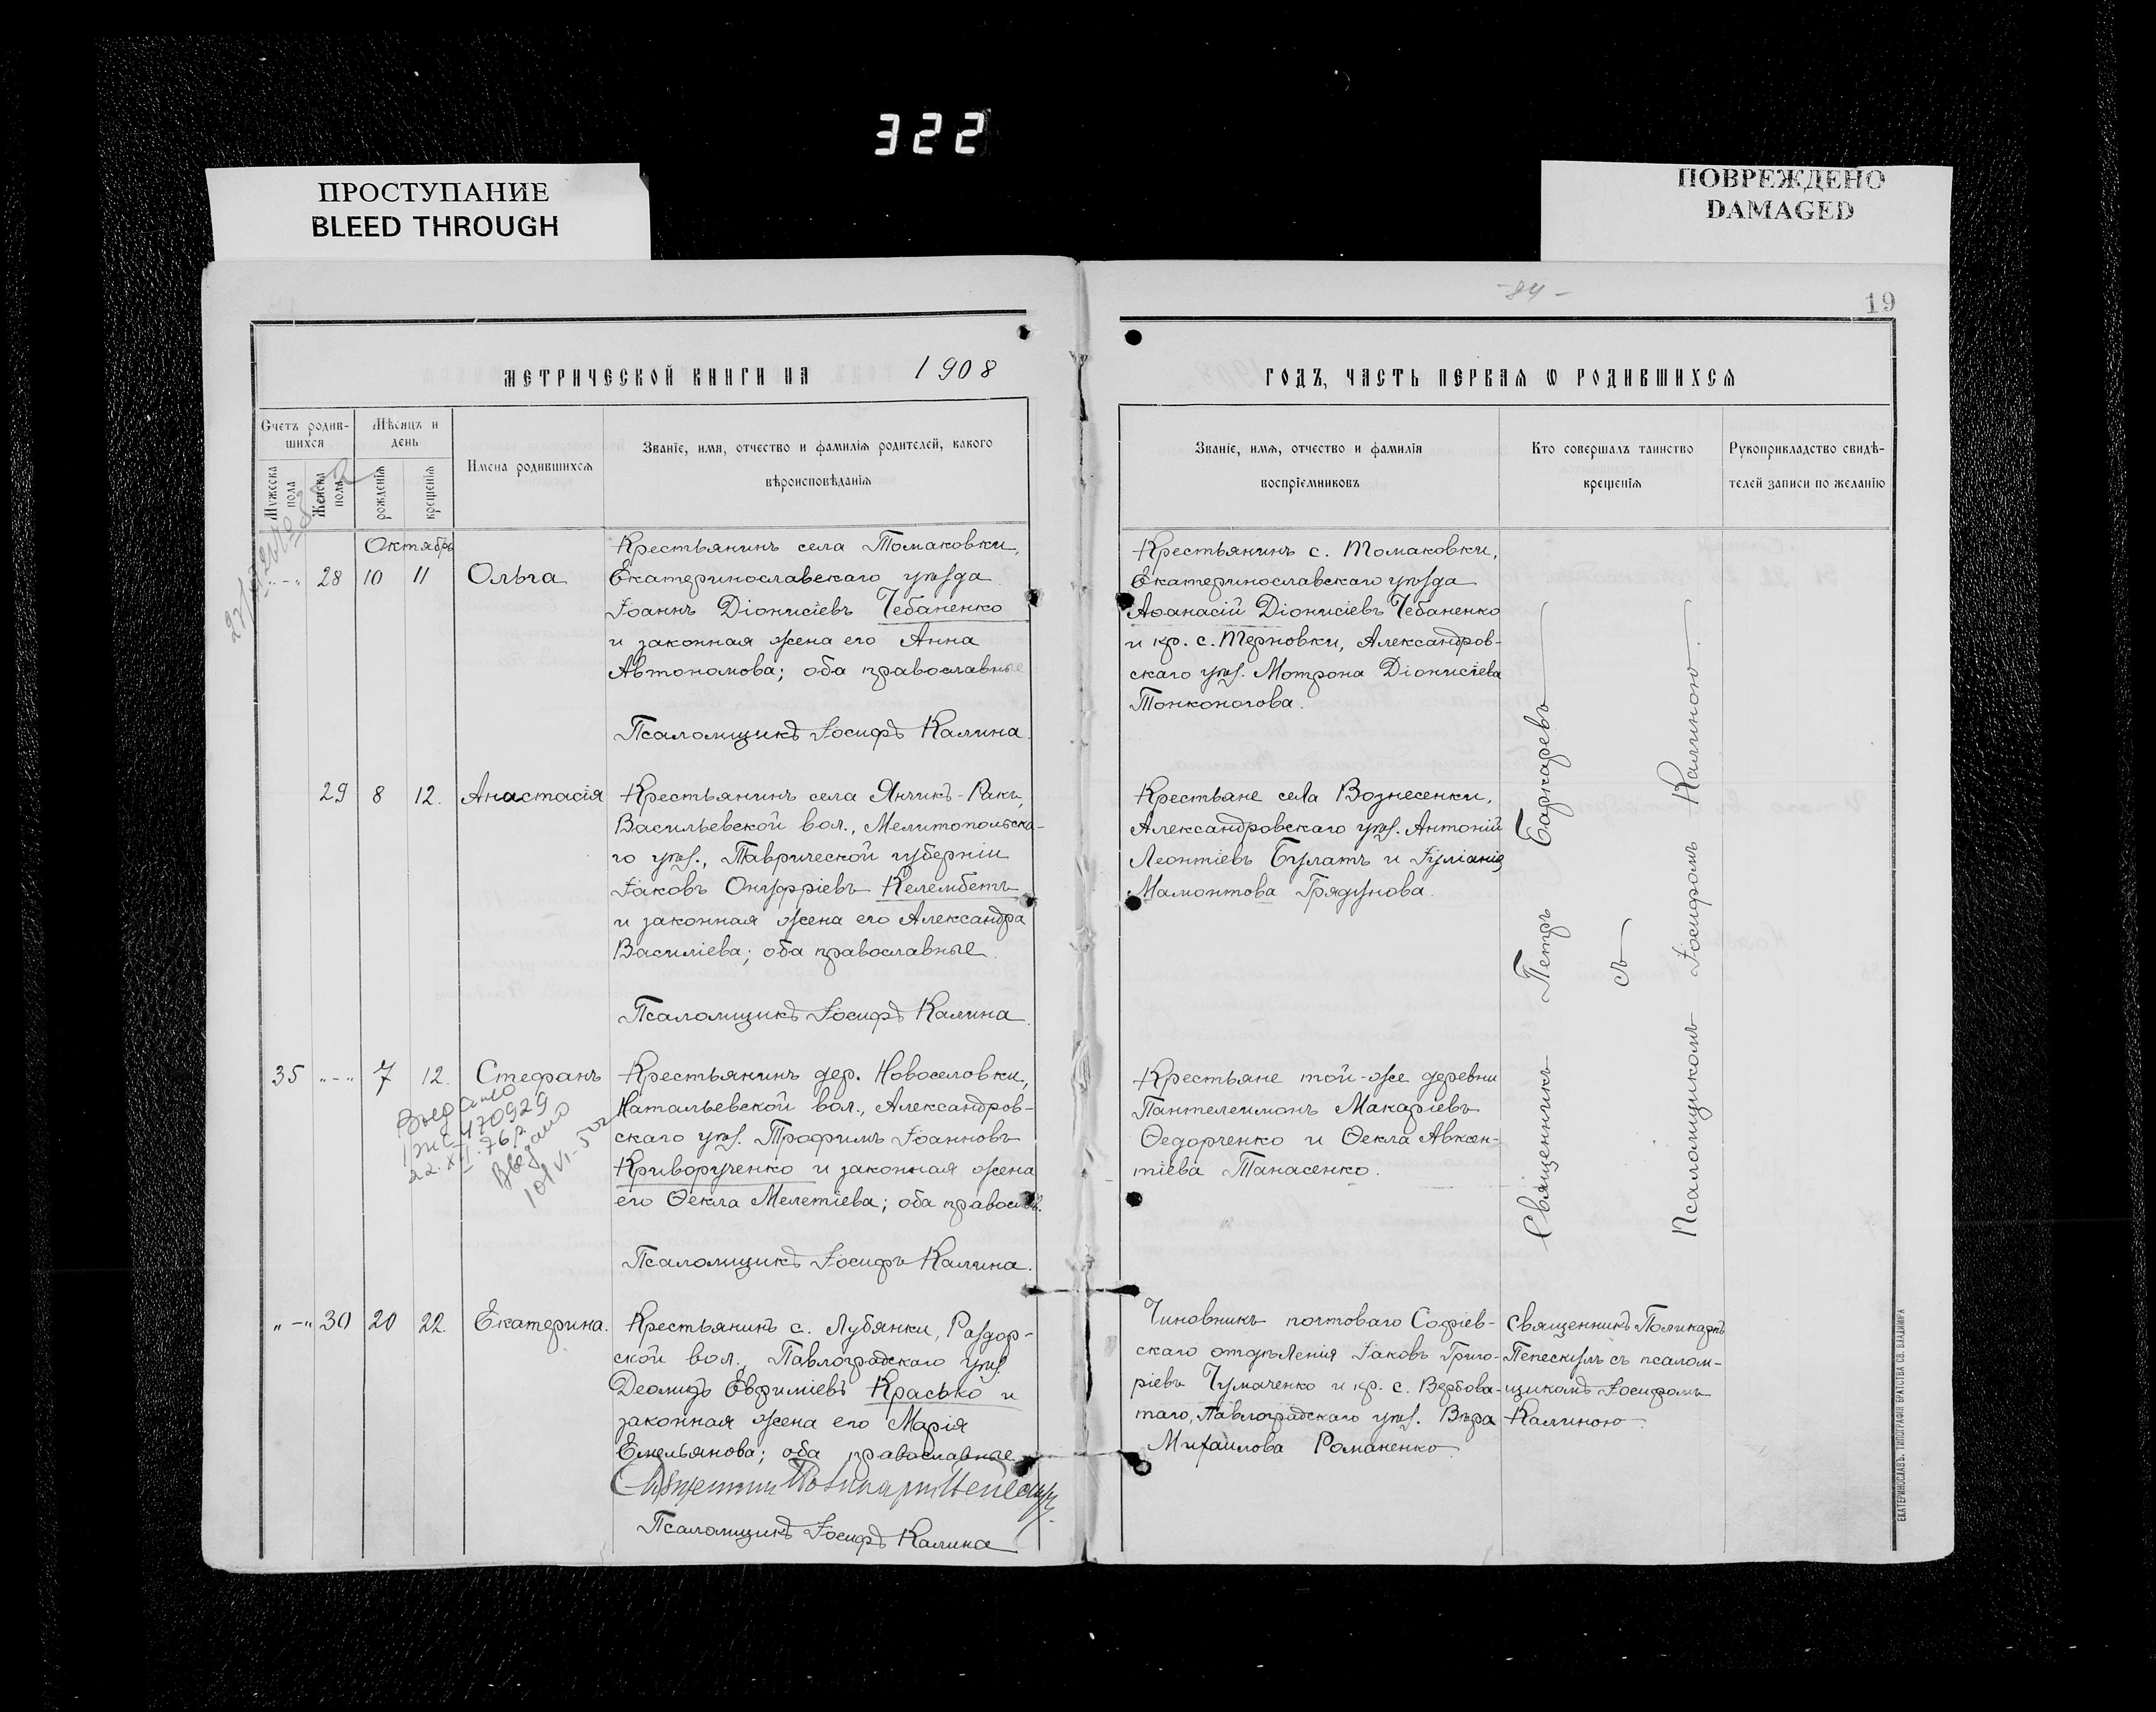 322
ПРОСТУПАНИЕ
BLEED THROUGH
ПОВРЕЖДЕНО
DAMAGED
- 84 -
19
МЕТРИЧЕСКОЙ КНИГИ НА 1908
ГОДЪ, ЧАСТЬ ПЕРВАЯ Ѡ РОДИВШИХСЯ
Счетъ родив-
шихся
Мужеска
пола
Женска
пола
Мѣсяцъ и
день
рожденія
крещенія
Имена родившихся
Званіе, имя, отчество и фамилія родителей, какого
вѣроисповѣданія
Званіе, имя, отчество и фамилія
воспріемниковъ
Кто совершалъ таинство
крещенія
Рукоприкладство свидѣ-
телей записи по желанію
Октябрь
„-„ 28 10 11 Ольга
Крестьянинъ села Томаковки,
Екатеринославскаго уѣзда
Іоаннъ Діонисіевъ Чебаненко
и законная жена его Анна
Автономова; оба православные
Псаломщикъ Іосифъ Калина.
Крестьянинъ с. Томаковки,
Екатеринославскаго уѣзда
Аѳанасій Діонисіевъ Чебаненко
и кр. с. Терновки, Александров-
скаго уѣз. Мотрона Діонисіева
Тонконогова.
29 8 12. Анастасія
Крестьянинъ села Янчикъ-Ракъ,
Васильевской вол., Мелитопольска-
го уѣз., Таврической губерніи
Іаковъ Онуфріевъ Келембетъ
и законная жена его Александра
Василіева; оба православные.
Псаломщикъ Іосифъ Калина.
Крестьяне села Вознесенки,
Александровскаго уѣз. Антоній
Леонтіевъ Булатъ и Іуліанія
Мамонтова Грядунова.
35 „-„ 7 12. Стефанъ
Крестьянинъ дер. Новоселовки,
Натальевской вол., Александров-
скаго уѣз. Трофимъ Іоанновъ
Криворученко и законная жена
его Ѳекла Мелетіева; оба правосл.
Псаломщикъ Іосифъ Калина.
470929
22.XII.76р
Крестьяне той-же деревни
Пантелеимонъ Макаріевъ
Ѳедорченко и Ѳекла Авксен-
тіева Танасенко.
Священникъ Петръ Баркаревъ
съ
Псаломщикомъ Іосифомъ Калиною.
„-„ 30 20 22. Екатерина.
Крестьянинъ с. Лубянки, Раздор-
ской вол., Павлоградскаго уѣз.
Деомидъ Евфиміевъ Красько и
законная жена его Марія
Емельянова; оба православные.
Псаломщикъ Іосифъ Калина
Чиновникъ почтоваго Софіев-
скаго отдѣленія Іаковъ Григо-
ріевъ Чумаченко и кр. с. Вербова-
таго, Павлоградскаго уѣз. Вѣра
Михаилова Романенко.
Священникъ Поликарпъ
Пепескулъ съ псалом-
щикомъ Іосифомъ
Калиною.
ЕКАТЕРИНОСЛАВЪ. ТИПОГРАФІЯ БРАТСТВА СВ. ВЛАДИМІРА